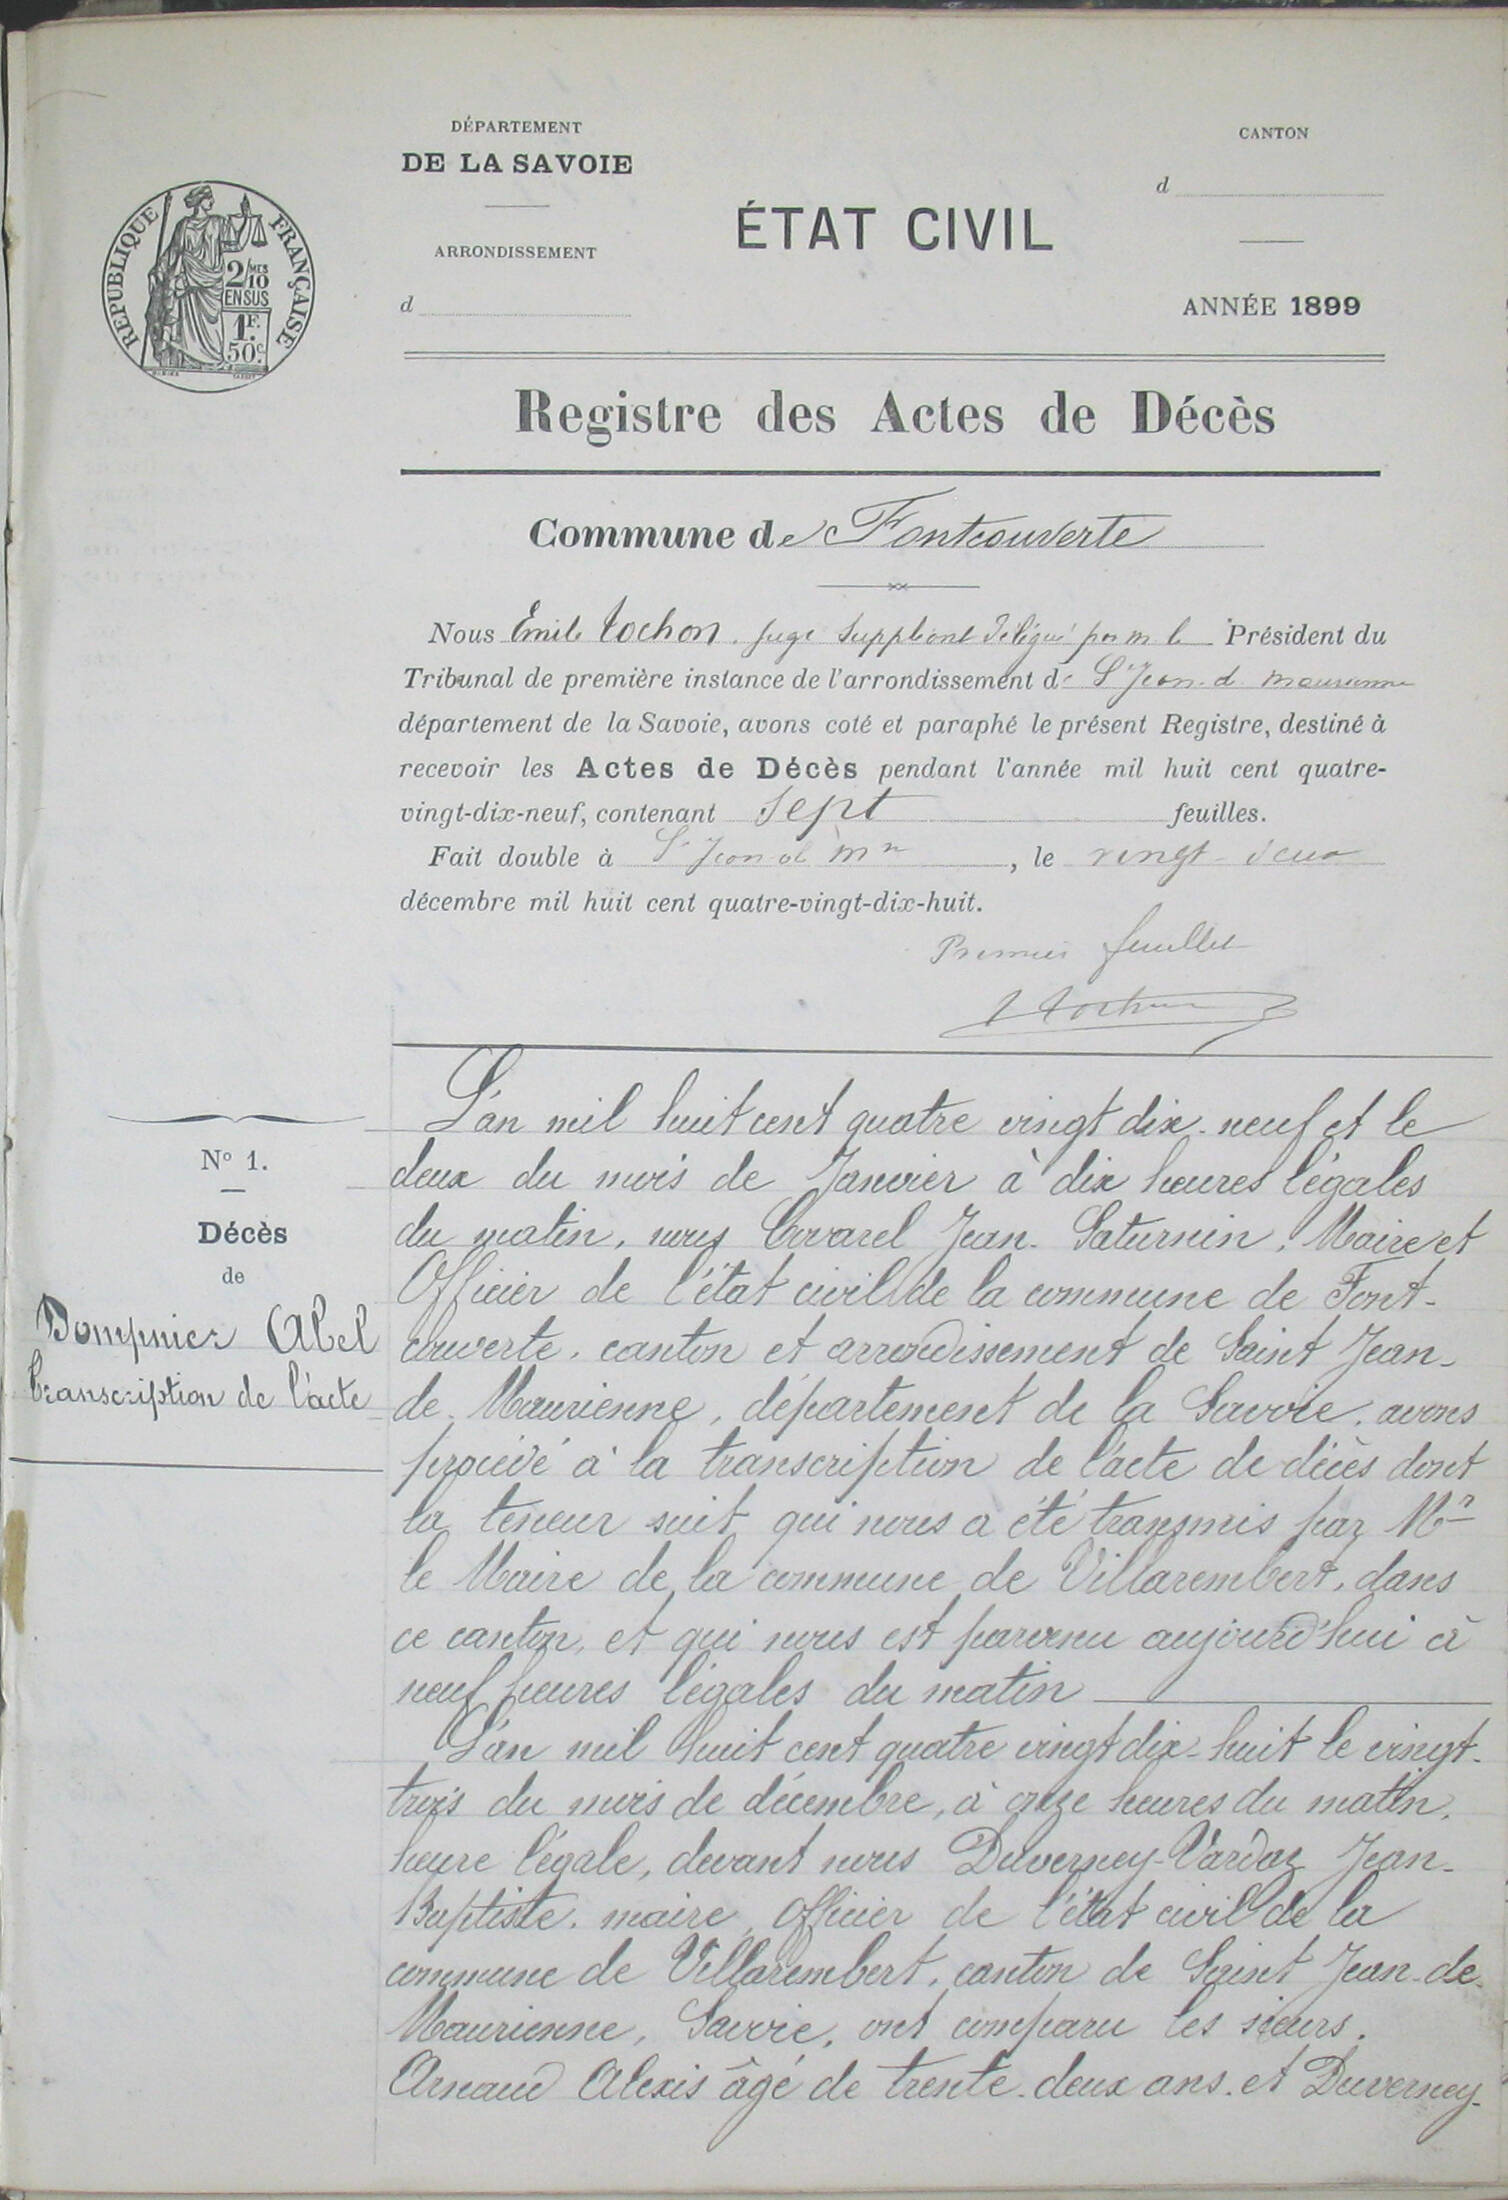 DÉPARTEMENT
DE LA SAVOIE
ARRONDISSEMENT
d
ÉTAT CIVIL
CANTON
d
ANNÉE 1899
RÉPUBLIQUE FRANÇAISE
2/10 MES
EN SUS
1F.
50c.
Registre des Actes de Décès
Commune de Fontcouverte
Nous Emile Tochon, juge suppléant délégué par m le Président du
Tribunal de première instance de l'arrondissement de St Jean de Maurienne
département de la Savoie, avons coté et paraphé le présent Registre, destiné à
recevoir les Actes de Décès pendant l'année mil huit cent quatre-
vingt-dix-neuf, contenant sept feuilles.
Fait double à St Jean de Mne, le vingt-deux
décembre mil huit cent quatre-vingt-dix-huit.
Premier feuillet
Tochon
N° 1.
Décès
de
Dompnier Abel
transcription de l'acte
L'an mil huit cent quatre vingt dix-neuf et le
deux du mois de Janvier à dix heures légales
du matin, nous Covarel Jean-Saturnin, Maire et
Officier de l'état civil de la commune de Font-
couverte, canton et arrondissement de Saint Jean-
de Maurienne, département de la Savoie, avons
procédé à la transcription de l'acte de décès dont
la teneur suit qui nous a été transmis par Mr
le Maire de la commune de Villarembert, dans
ce canton, et qui nous est parvenu aujourd'hui à
neuf heures légales du matin
L'an mil huit cent quatre vingt dix-huit le vingt-
trois du mois de décembre, à onze heures du matin,
heure légale, devant nous Duverney-Vardaz Jean-
Baptiste, maire, Officier de l'état civil de la
commune de Villarembert, canton de Saint Jean-de-
Maurienne, Savoie, ont comparu les sieurs.
Arnaud Alexis âgé de trente-deux ans et Duverney-